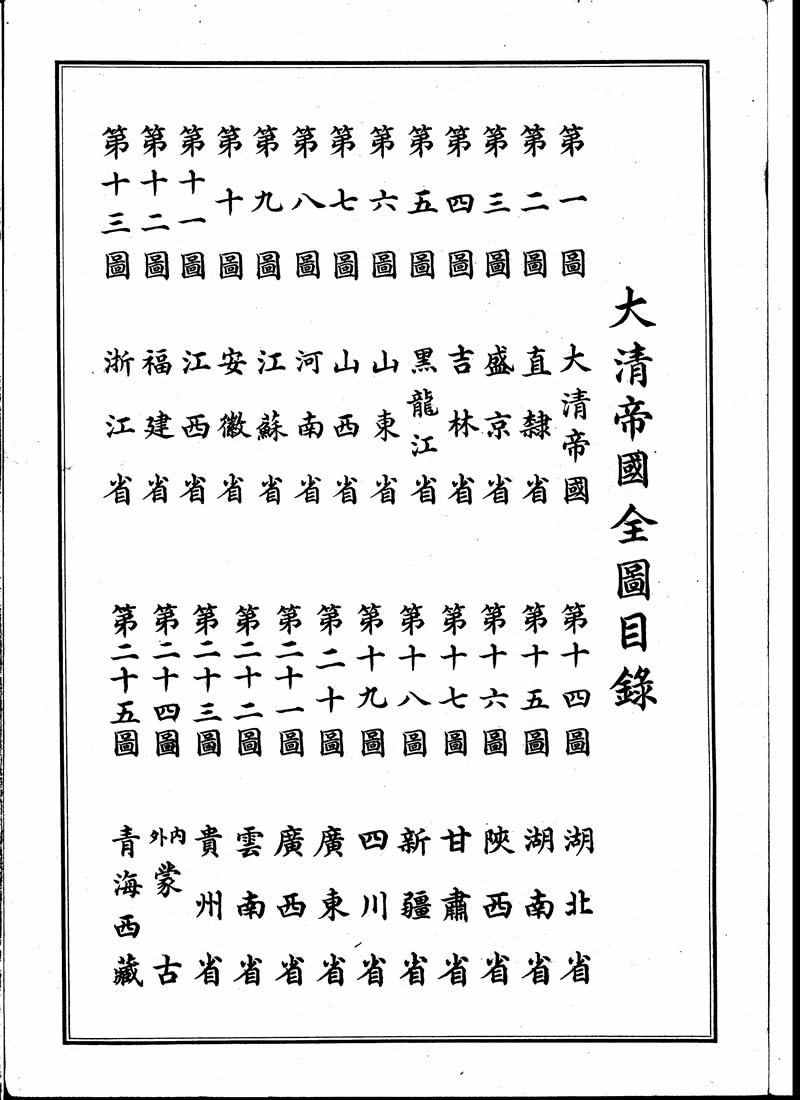 大清帝國全圖目錄
第一圖 大清帝國
第二圖 直隸省
第三圖 盛京省
第四圖 吉林省
第五圖 黑龍江省
第六圖 山東省
第七圖 山西省
第八圖 河南省
第九圖 江蘇省
第十圖 安徽省
第十一圖 江西省
第十二圖 福建省
第十三圖 浙江省
第十四圖 湖北省
第十五圖 湖南省
第十六圖 陝西省
第十七圖 甘肅省
第十八圖 新疆省
第十九圖 四川省
第二十圖 廣東省
第二十一圖 廣西省
第二十二圖 雲南省
第二十三圖 貴州省
第二十四圖 內外蒙古
第二十五圖 青海西藏